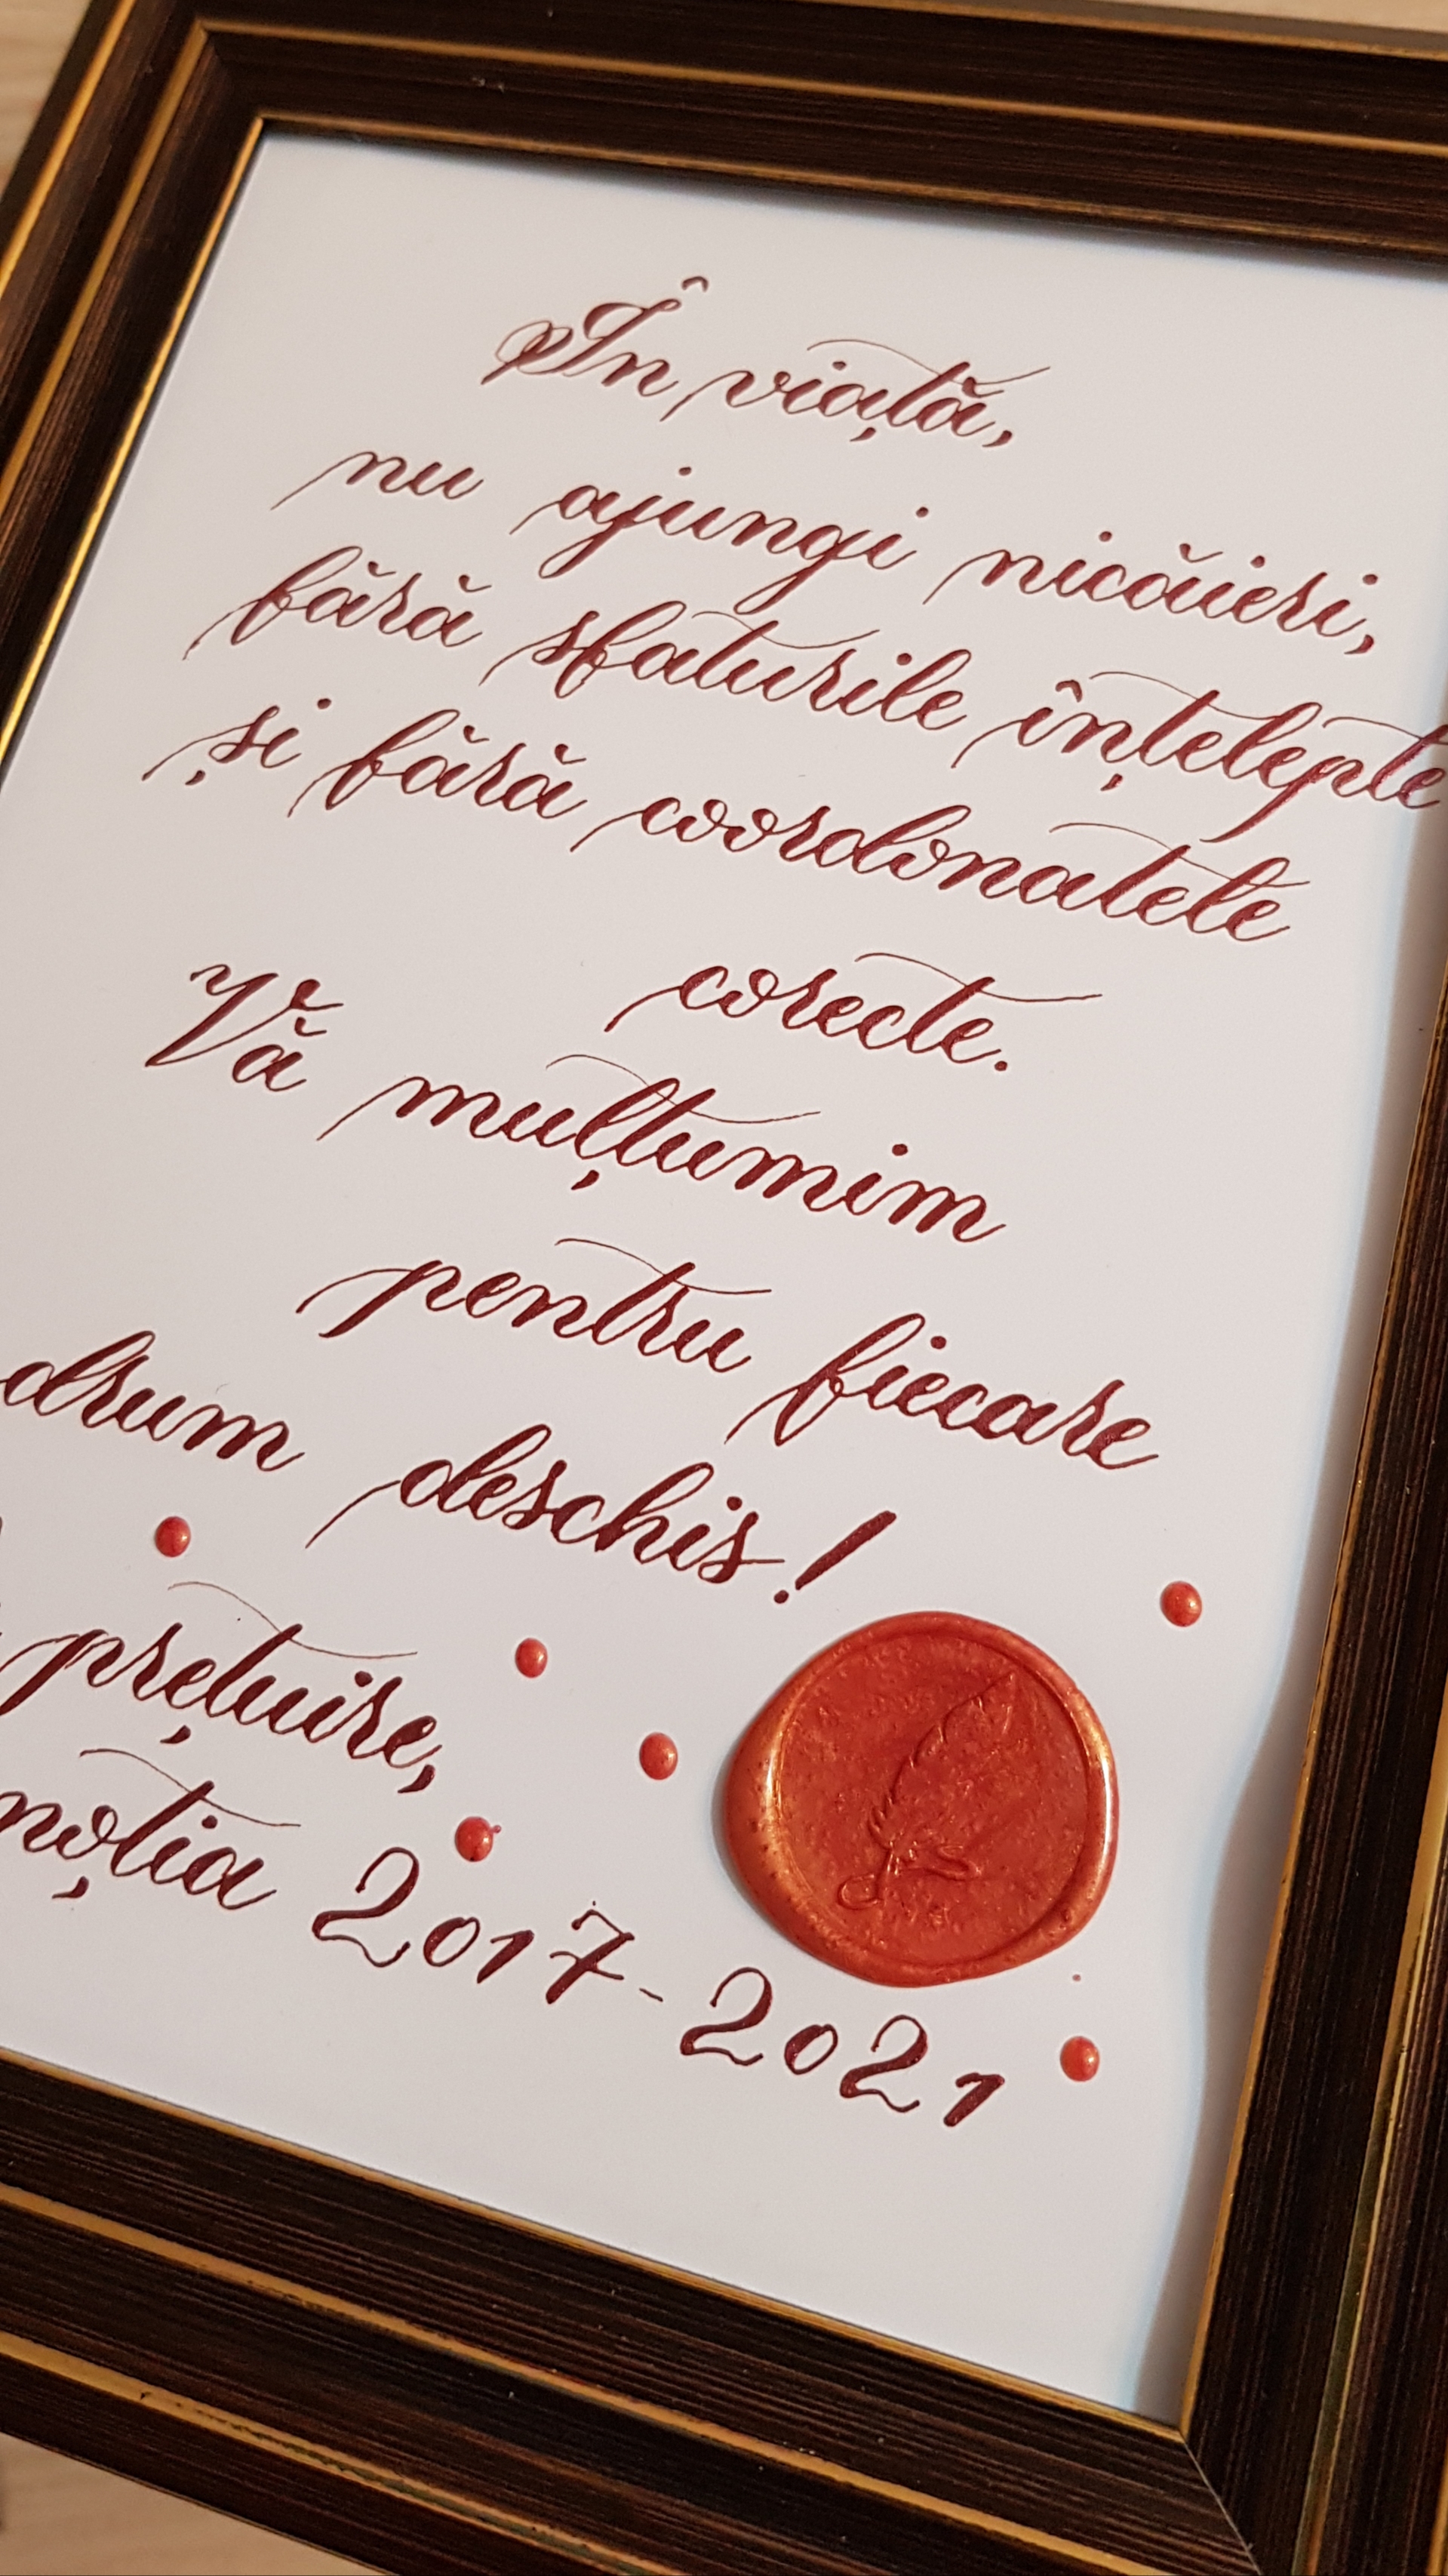 În viață,
nu ajungi nicăieri,
fără sfaturile înțelepte
și fără coordonatele
corecte.
Vă mulțumim
pentru fiecare
drum deschis!
prețuire,
2017-2021